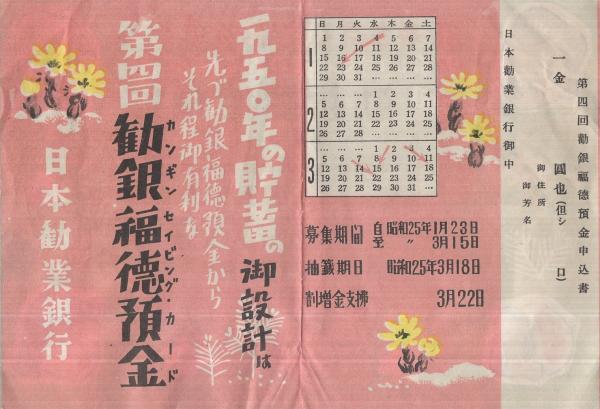 第四回勸銀福德預金申込書
一金 圓也(但シ 口)
御住所
御芳名
日本勸業銀行御中
日 月 火 水 木 金 土
1
1 2 3 4 5 6 7
8 9 10 11 12 13 14
15 16 17 18 19 20 21
22 23 24 25 26 27 28
29 30 31 … … … …
2
… … … 1 2 3 4
5 6 7 8 9 10 11
12 13 14 15 16 17 18
19 20 21 22 23 24 25
26 27 28 … … … …
3
… … … 1 2 3 4
5 6 7 8 9 10 11
12 13 14 15 16 17 18
19 20 21 22 23 24 25
26 27 28 29 30 31 …
募集期間 自 昭和25年1月23日
至 〃 3月15日
抽籤期日 昭和25年3月18日
割増金支拂 3月22日
一九五〇年の貯蓄の御設計は
先づ勸銀福德預金から
それ程御有利な
カンギンセイビング・カード
第四回勸銀福德預金
日本勸業銀行